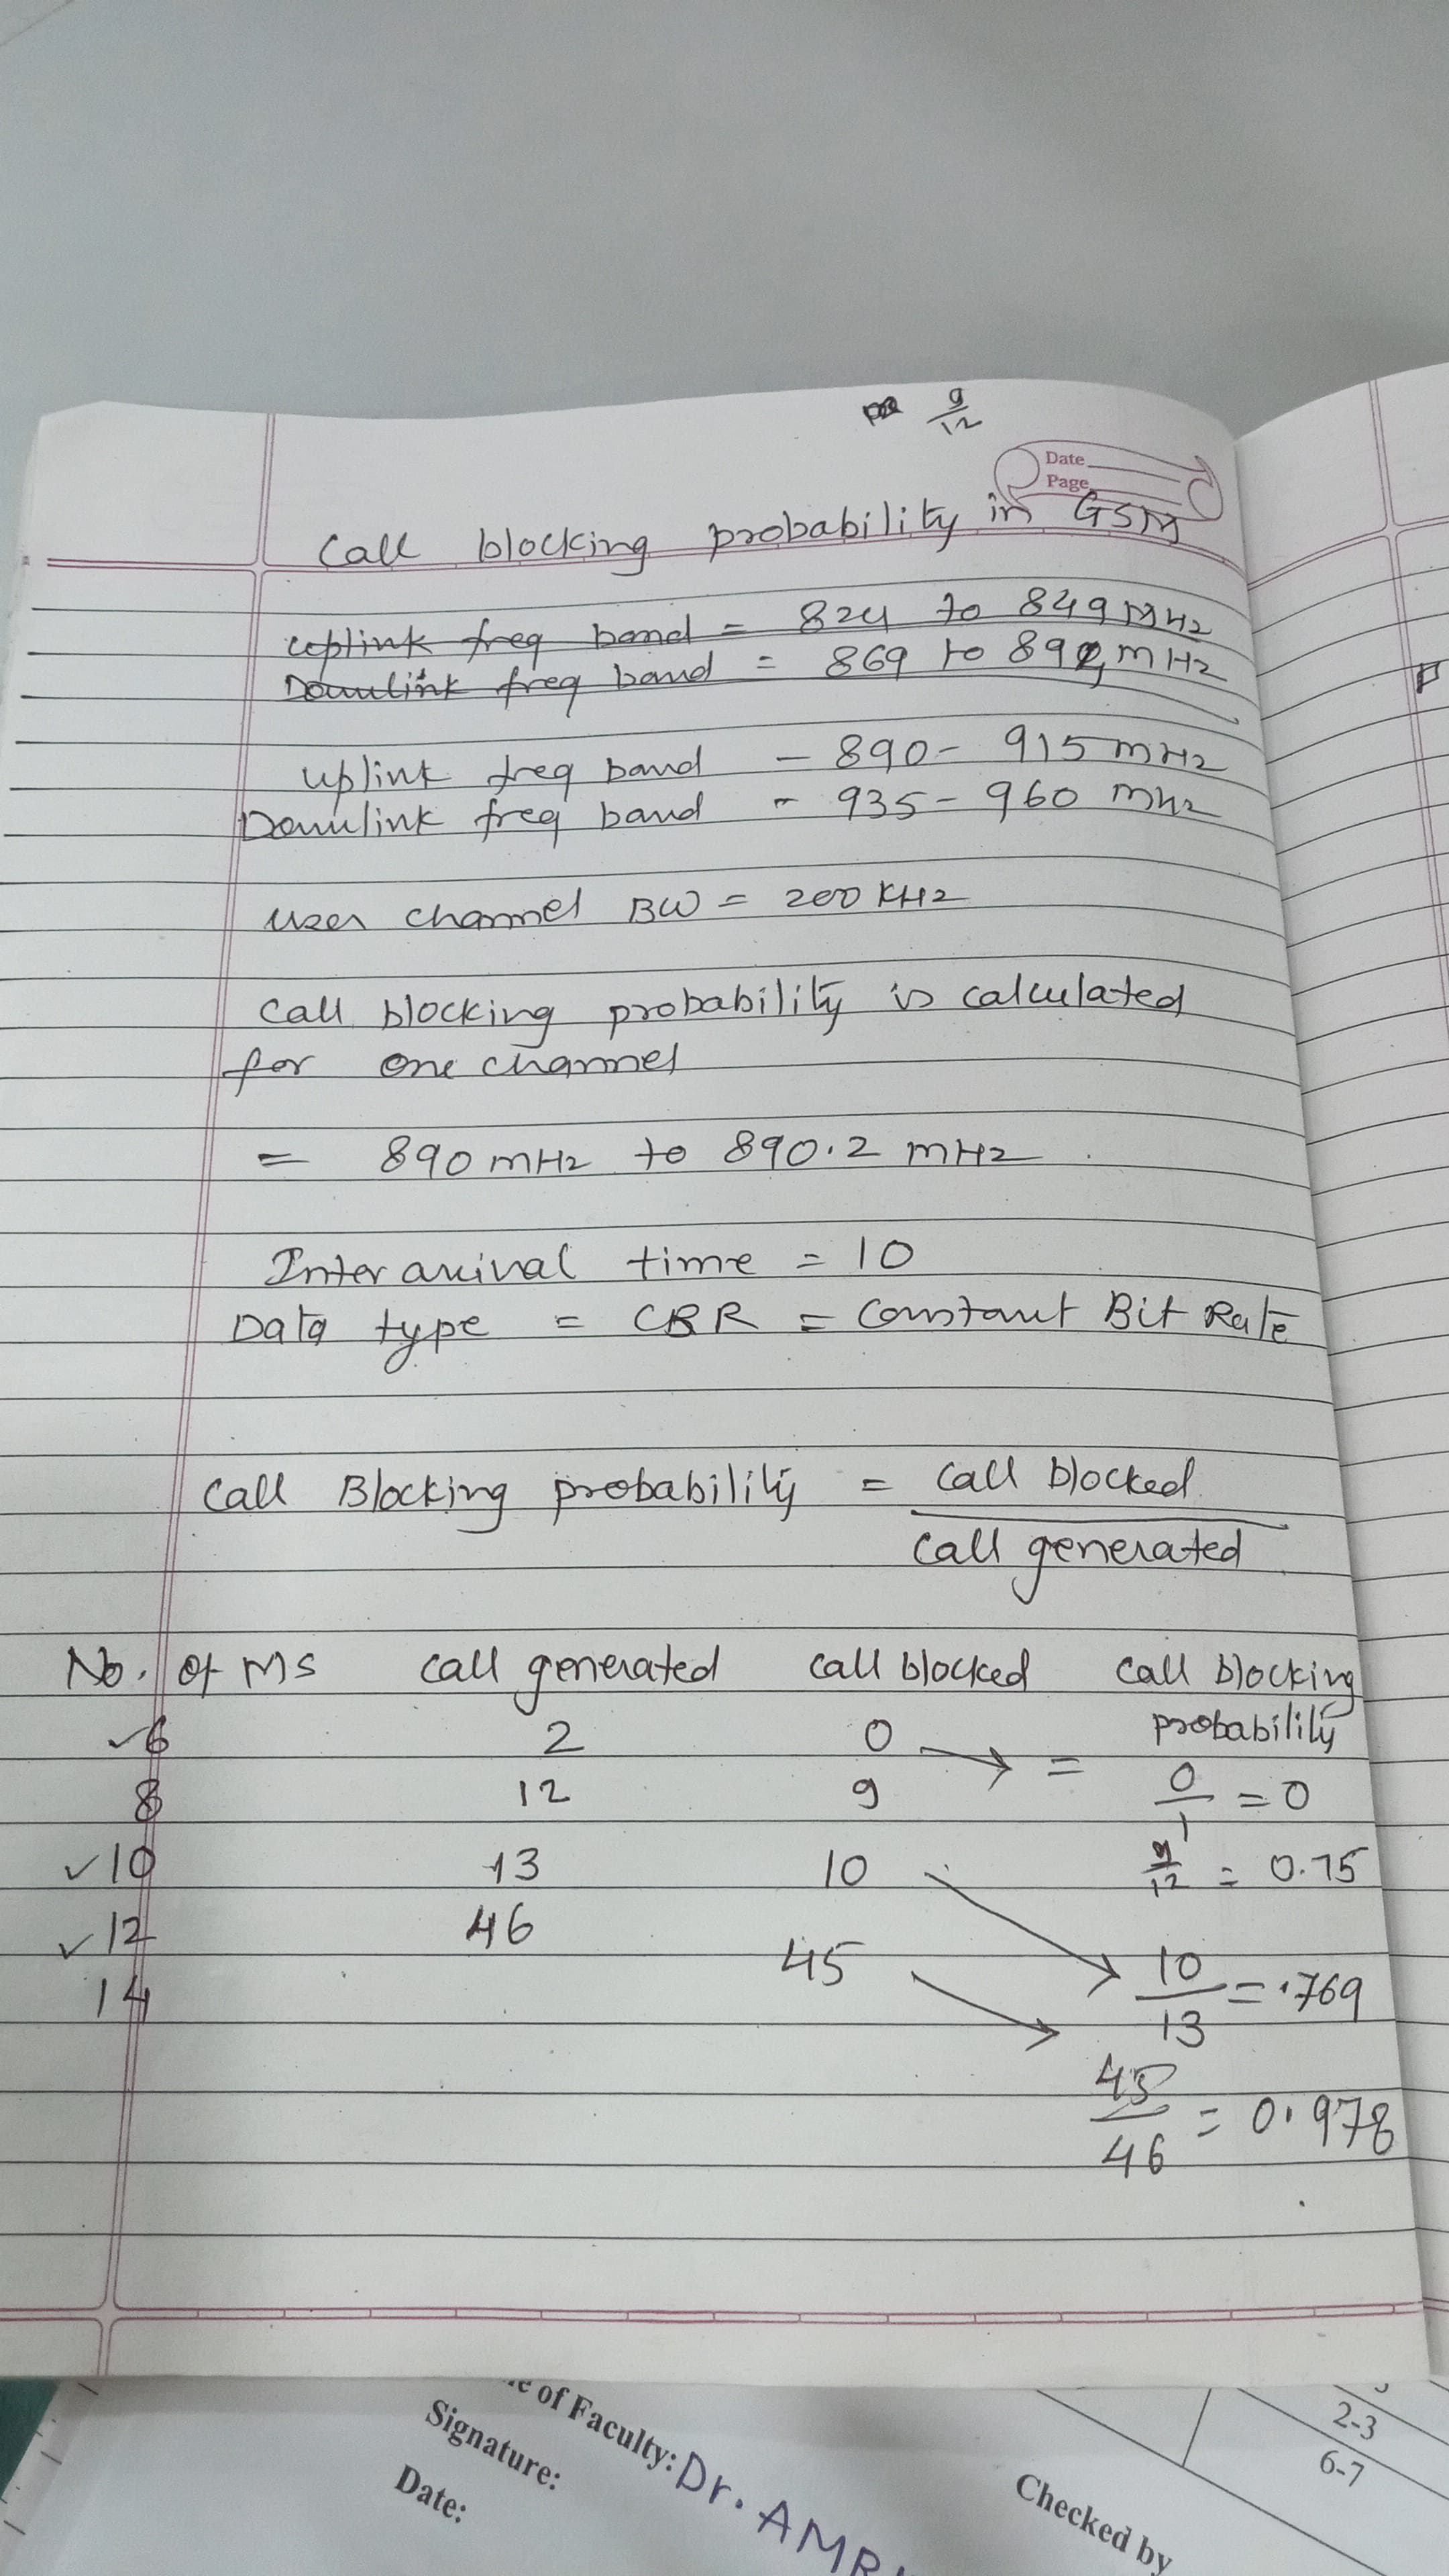 9/12
Date
Page
Call blocking probability in GSM
Uplink freq band = 824 to 849 MHz
Downlink freq band = 869 to 894 MHz
Uplink freq band - 890 - 915 MHz
Downlink freq band - 935 - 960 MHz
User channel BW = 200 KHz
Call blocking probability is calculated
for one channel
= 890 MHz to 890.2 MHz
Inter arrival time = 10
Data type = CBR = Constant Bit Rate
Call Blocking probability = Call blocked
Call generated
No. of MS Call generated Call blocked Call blocking
probability
6 2 0 → = 0/1 = 0
8 12 9 9/12 = 0.75
10 13 10 → 10/13 = .769
12 46 45 → 45/46 = 0.978
14
of Faculty: Dr.
Signature:
Date:
Checked by
2-3
6-7